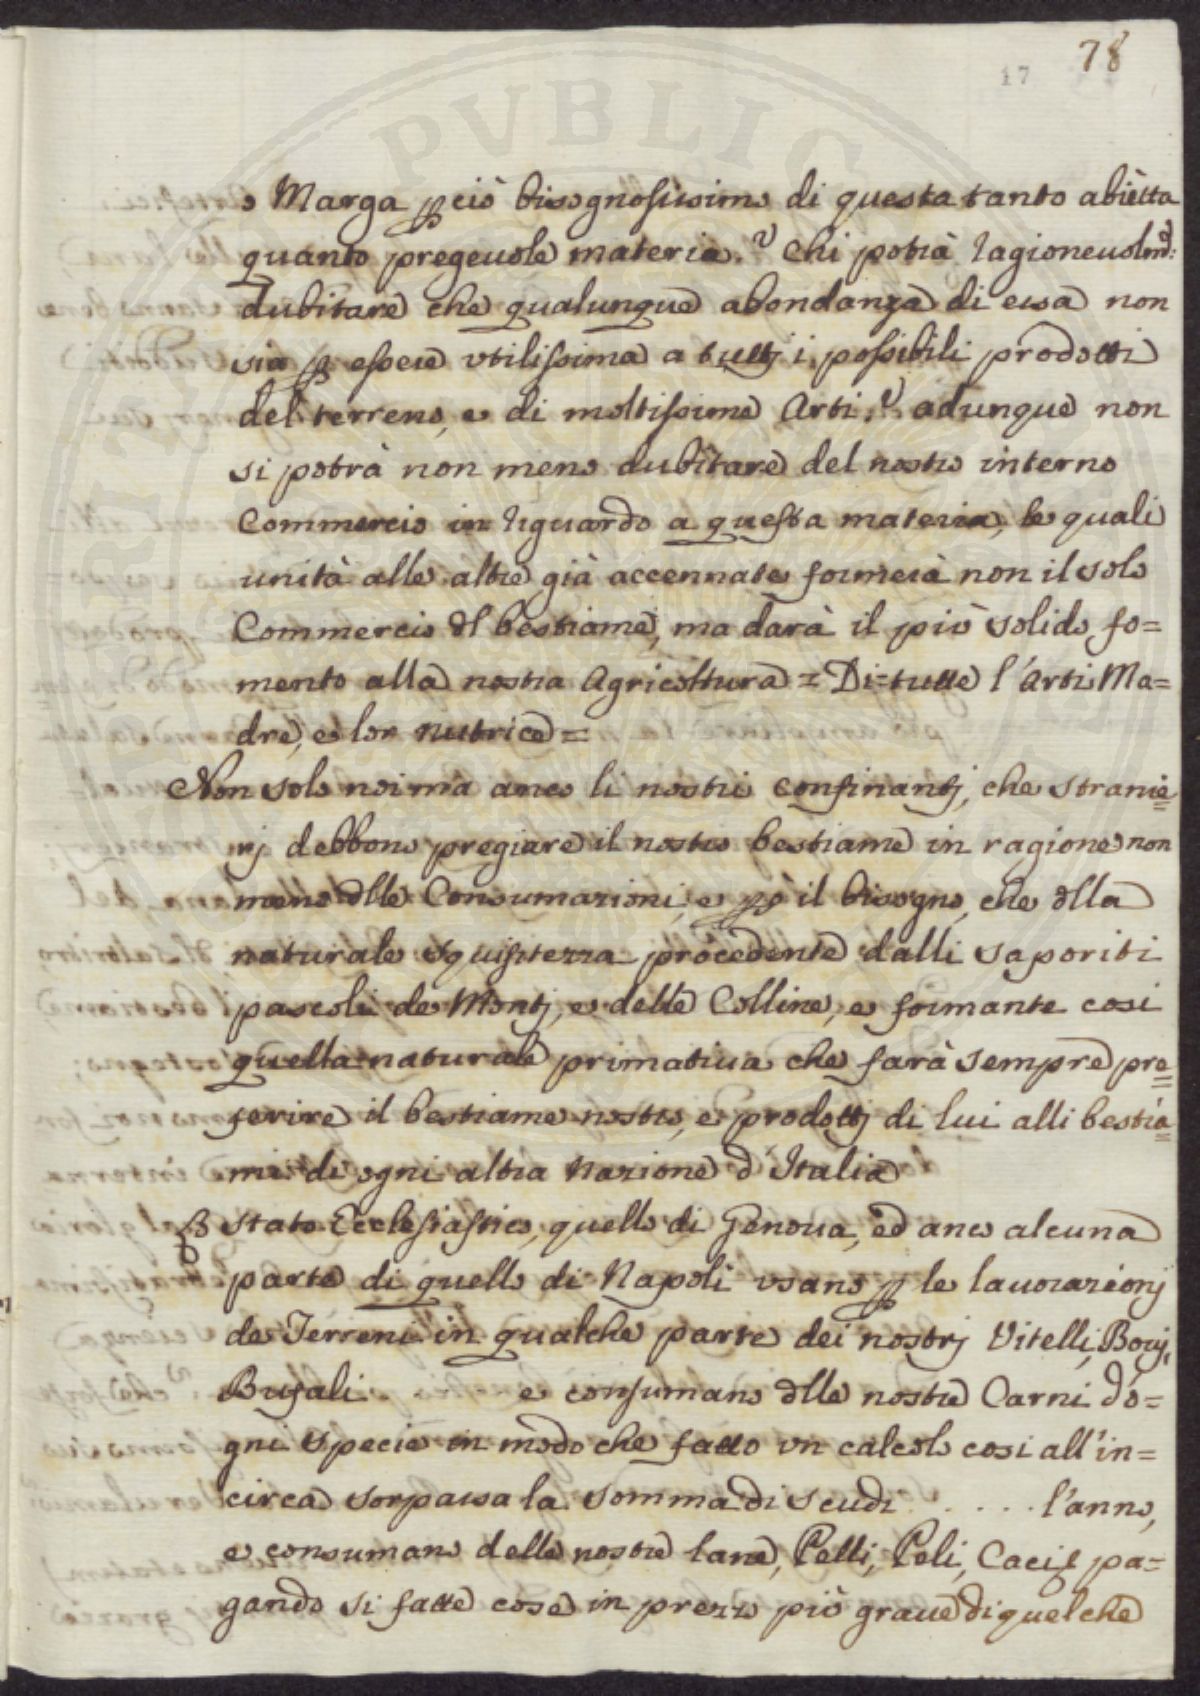 78
17
o Marga p ciò bisognosissimo di questa tanto abiètta
quanto pregeuole materia.? Chi potrà ragioneuolmte:
dubitare che qualunque abondanza di essa non
sia p essere vtilissima a tuttj i possibili prodotti
del terreno, e di moltissime Arti.? adunque non
si potrà non meno dubitare del nostro interno
Commercio in riguardo a questa materia, le quali
unità alle altre già accennate formerà non il solo
Commercio dl bestiame, ma darà il più solido fo=
mento alla nostra Agricoltura = Di tutte l'Arti Ma=
dre, e lor nutrice =
Non solo noi ma anco li nostri confinantj, che stranie=
rj debbono pregiare il nostro bestiame in ragione non
meno dlle Consumazioni, e il bisogno, che dlla
naturale squisitezza procedente dalli saporiti
pascoli de Montj, e delle Colline, e formante cosi
quella naturale primatiua che farà sempre pre=
ferire il bestiame nostro, e prodottj di lui alli bestia=
mi di ogni altra Nazione d'Italia
Stato Ecclesiastico, quello di Genoua, ed anco alcuna
parte di quello di Napoli vsano p le lauorazionj
de Terreni in qualche parte dei nostrj Vitelli, Bouj,
Bufali e consumano dlle nostre Carni d'o=
gni specie in modo che fatto vn calcolo cosi all'in=
circa sorpassa la somma di scudi . . . . . l'anno,
e consumano delle nostre lane, Pelli, Peli, Caci e pa=
gando si fatte cose in prezzo più graue di quel che